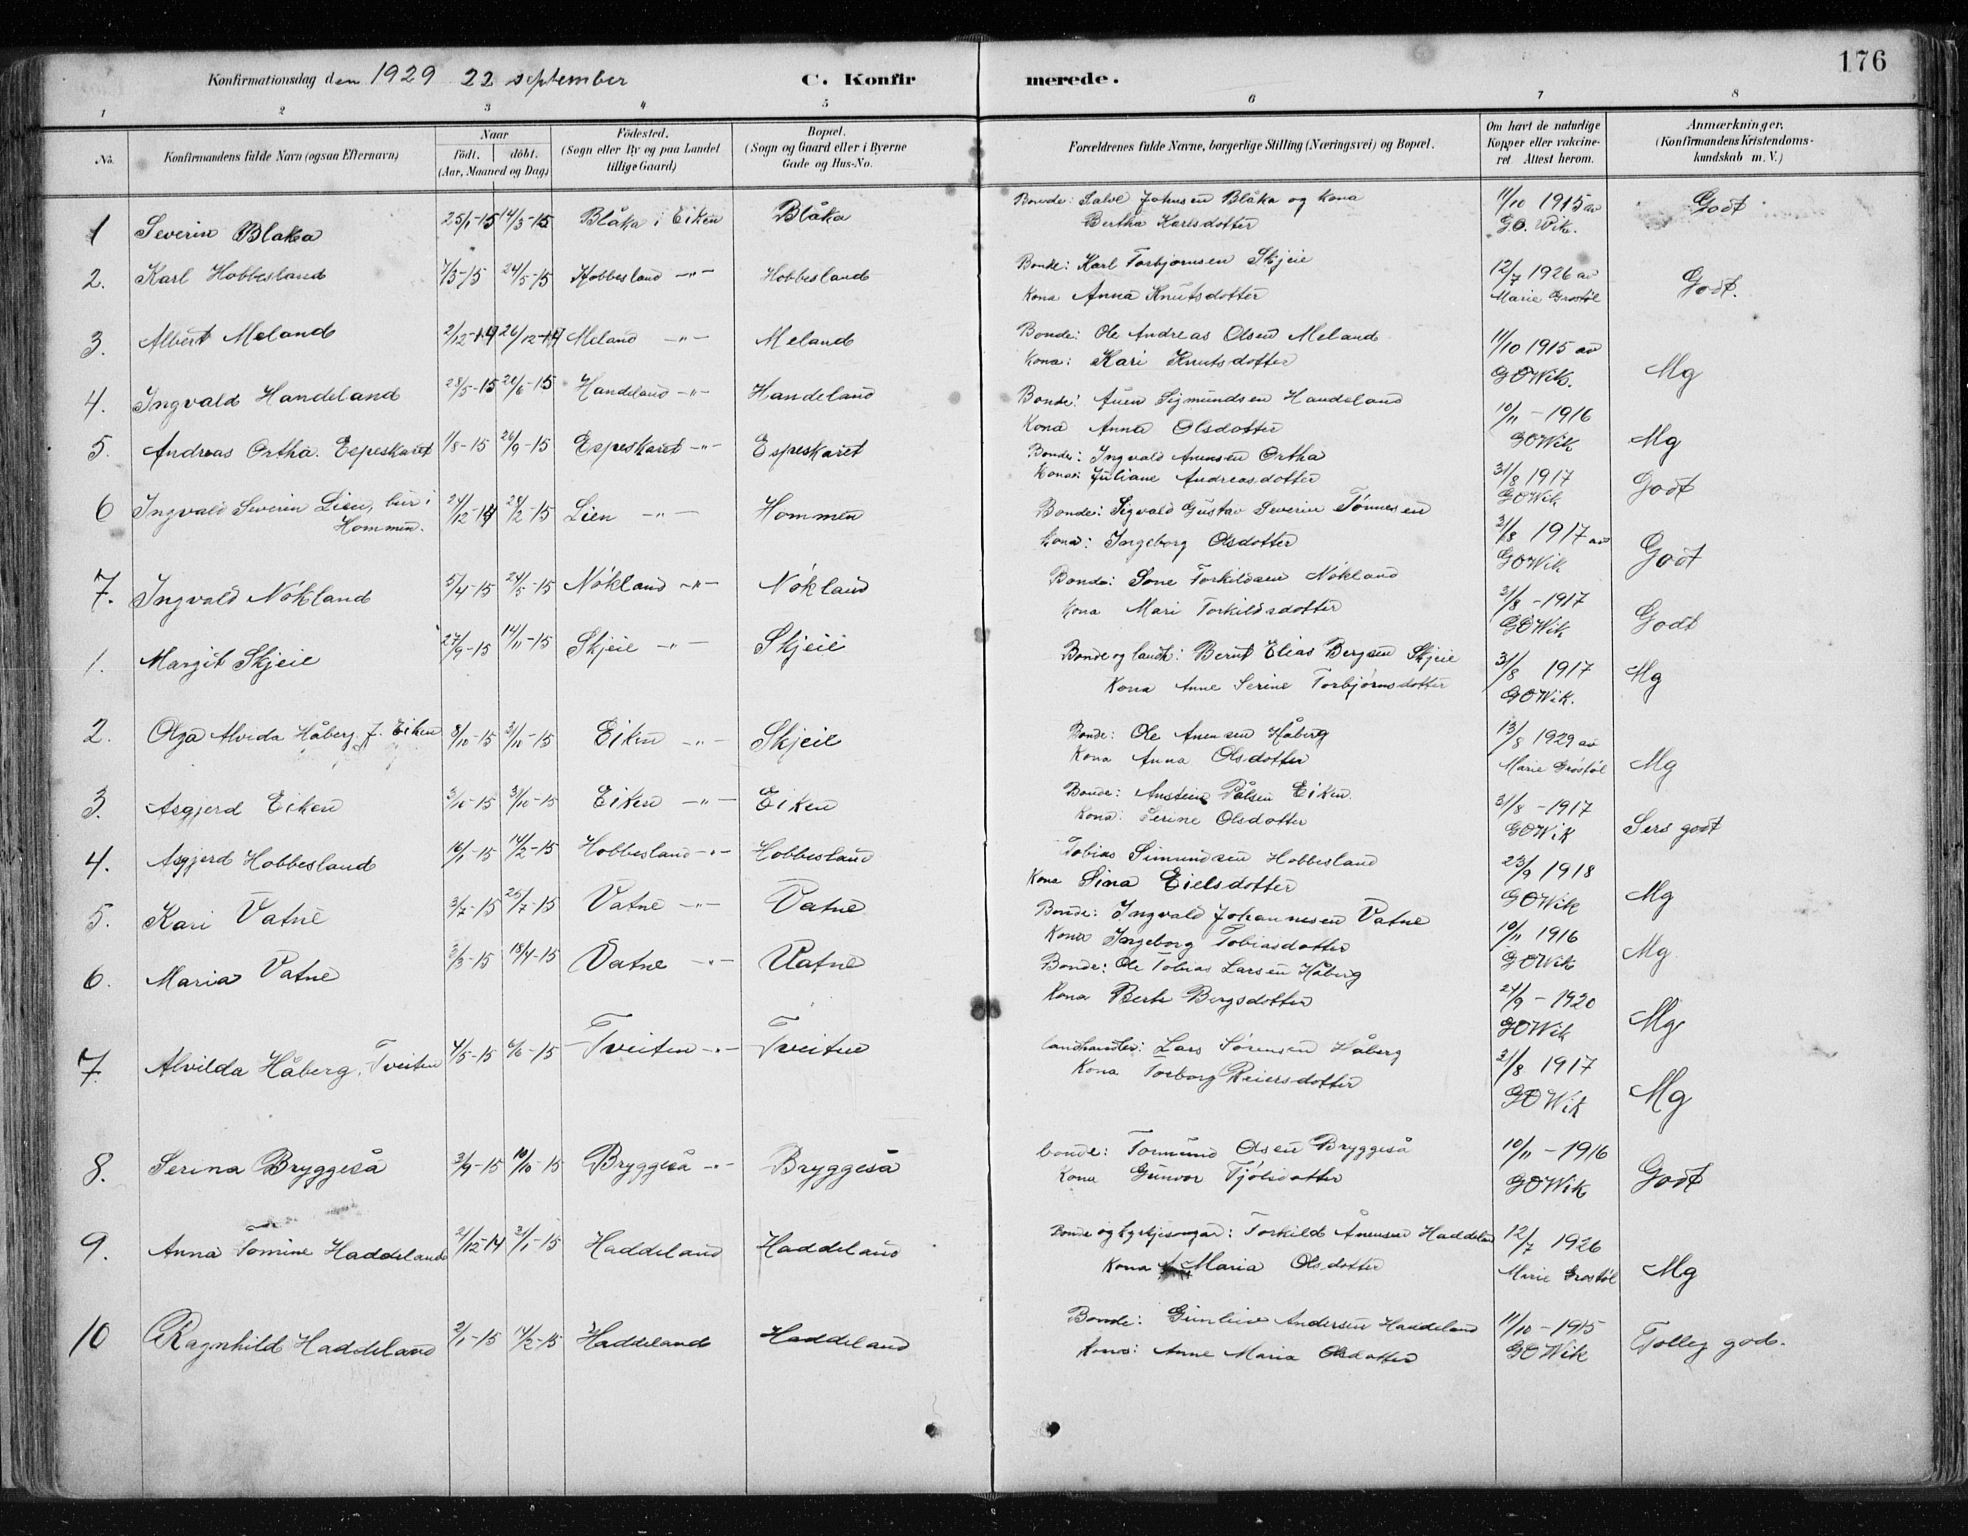 176
Konfirmationsdag den 1929 22 september C. Konfirmerede.
1 2 3 4 5 6 7 8
No. Konfirmandens fulde Navn (ogsaa Efternavn) Naar födt. döbt. (Aar, Maaned og Dag) Födested. (Sogn eller By og paa Landet tillige Gaard) Bopæl. (Sogn og Gaard eller i Byerne Gade og Hus-No. Forældrenes fulde Navne, borgerlige Stilling (Næringsvei) og Bopæl. Om havt de naturlige Kopper eller vakcineret Attest herom. Anmærkninger. (Konfirmandens Kristendomskundskab m. V.)
1 Severin Blåka 25/1-15 14/3-15 Blåka i Eiken Blåka Bonde: Salve Johnsen Blåka og kona 11/10 1915 av Godt
Bertha Karlsdotter GO. Wik.
2. Karl Hobbesland 7/3-15 24/5-15 Hobbesland -"- Hobbesland Bonde: Karl Torbjørnsen Skjeie 12/7 1926 av Godt.
Kona Anna Knutsdotter Marie Grostøl
3. Albert Meland 2/12-14 26/12-14 Meland -"- Meland Bonde: Ole Andreas Olsen Meland 11/10 1915 av
Kona: Kari Knutsdotter GOWik. Mg
4. Ingvald Handeland 28/5-15 26/6-15 Handeland -"- Handeland Bonde: Anen Sigmundsen Handeland 10/11 - 1916
Kona Anna Olsdotter GOWik Mg
5. Andreas Ortha. Espeskaret 1/8-15 26/9-15 Espeskaret -"- Espeskaret Bonde: Ingvald Anensen Ortha 31/8 1917
Kona: Juliane Andreasdotter GOWik Godt
6 Ingvald Severin Lien, bur i Hommen. 24/12-14 28/2-15 Lien -"- Hommen Bonde: Sigvald Gustav Severin Tønnesen 31/8 1917 av
Kona: Ingeborg Olsdotter GOWik Godt
7. Ingvald Nökland 5/4-15 24/5-15 Nökland -"- Nökland Bonde: Sone Torkildsen Nökland 31/8-1917
Kona Mari Torkildsdotter GOWik Godt
1. Margit Skjeie 27/9-15 14/11-15 Skjeie -"- Skjeie Bonde og landh: Bernt Elias Bergsen Skjeie 31/8 1917
Kona Anne Serine Torbjørnsdotter GOWik. Mg
2. Olga Alvida Håberg f. Eiken 8/10-15 31/10-15 Eiken -"- Skjeie Bonde: Ole Anensen Håberg 13/8 1929 av
Kona Anna Olsdotter Marie Grostøl Mg
3. Asgjerd Eiken 3/10-15 31/10-15 Eiken -"- Eiken Bonde: Anstein Pålsen Eiken. 31/8-1917
Kona: Serine Olsdotter GOWik Sers godt
4. Asgjerd Hobbesland 16/1-15 14/2-15 Hobbesland -"- Hobbesland Tobias Simundsen Hobbesland 23/9 1918
Kona Sina Eielsdotter GOWik Mg
5. Kari Vatne 3/7-15 25/7-15 Vatne -"- Vatne Bonde: Ingvald Johannesen Vatne 10/11 1916
Kona Ingeborg Tobiasdotter GOWik Mg
6. Maria Vatne 3/3-15 18/4-15 Vatne -"- Vatne Bonde: Ole Tobias Larsen Håberg 24/9 - 1920
Kona Berte Bergsdotter GOWik Mg
7. Alvilda Håberg, Tveiten 4/5-15 6/6-15 Tveiten -"- Tveiten landhandler: Lars Sørensen Håberg 31/8 1917
Kona Torborg Reiersdotter GOWik Mg
8. Serina Bryggeså 3/9-15 10/10-15 Bryggeså -"- Bryggeså bonde: Tormund Olsen Bryggeså 10/11 - 1916
Kona Gunvor Tjølsdotter GOWik Godt
9. Anna Tomine Haddeland 21/12-14 31/1-15 Haddeland Haddeland Bonde og kyrkjesongar: Torkild Ånensen Haddeland 12/7 1926
Kona Maria Olsdotter Marie Grostøl Mg
10 Ragnhild Haddeland 2/1-15 14/2-15 Haddeland Haddeland Bonde: Gunleiv Andersen Haddeland 11/10-1915
Kona: Anne Maria Olsdotter GOWik Tolleg god.